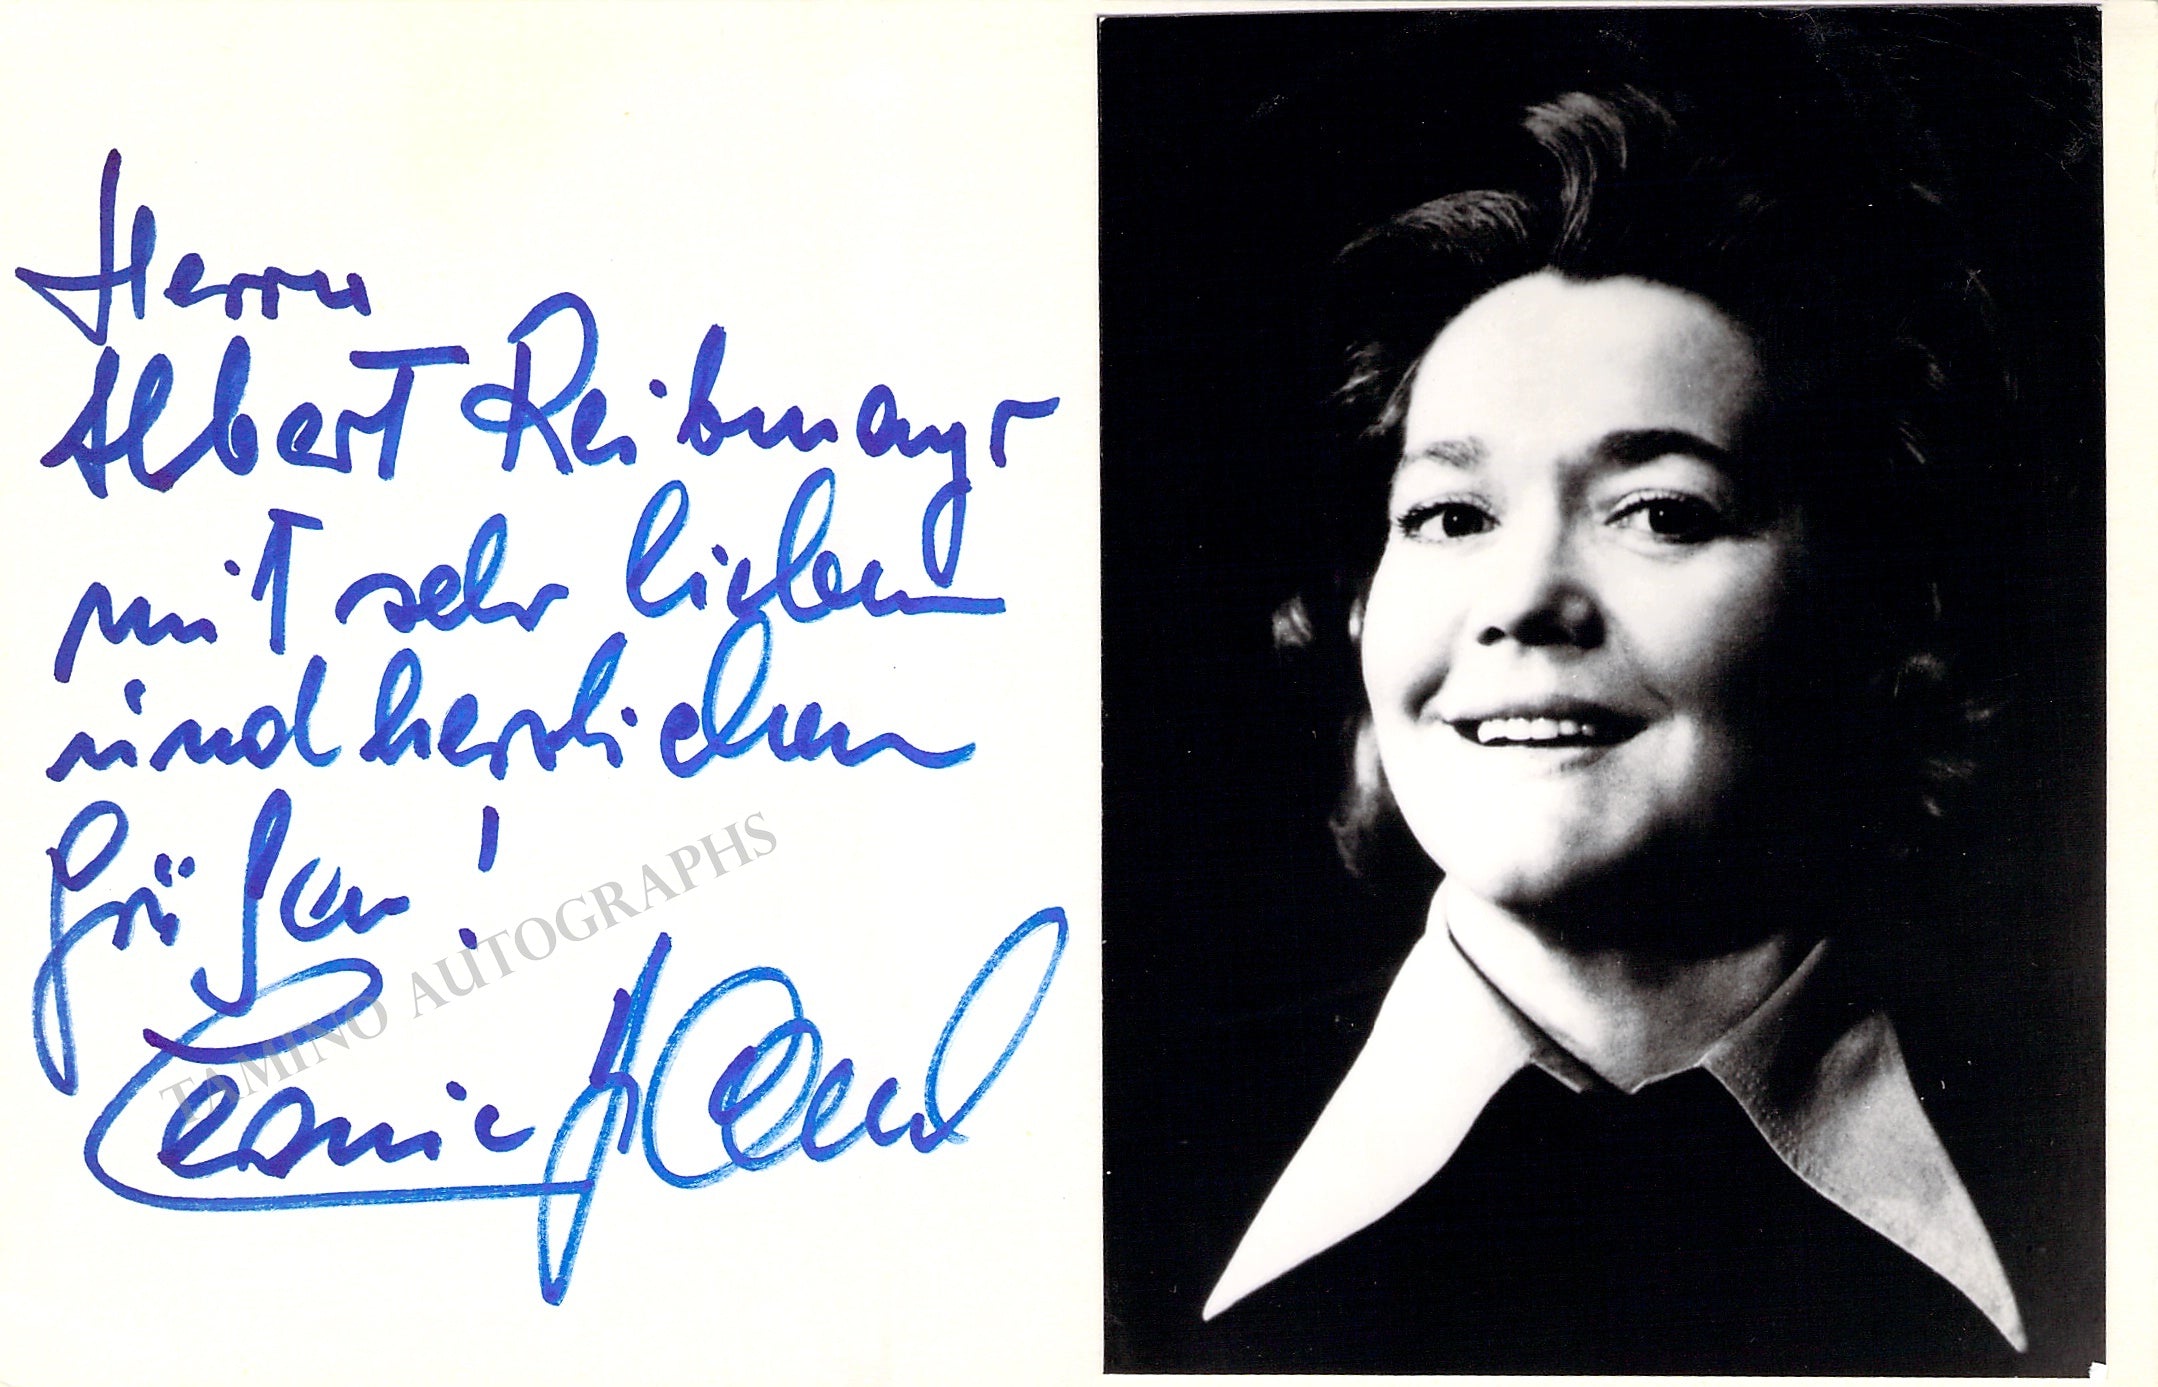 Herrn
Albert Reibmayr
mit sehr lieben
und herzlichen
Grüßen!
Leonie Rysanek
TAMINO AUTOGRAPHS